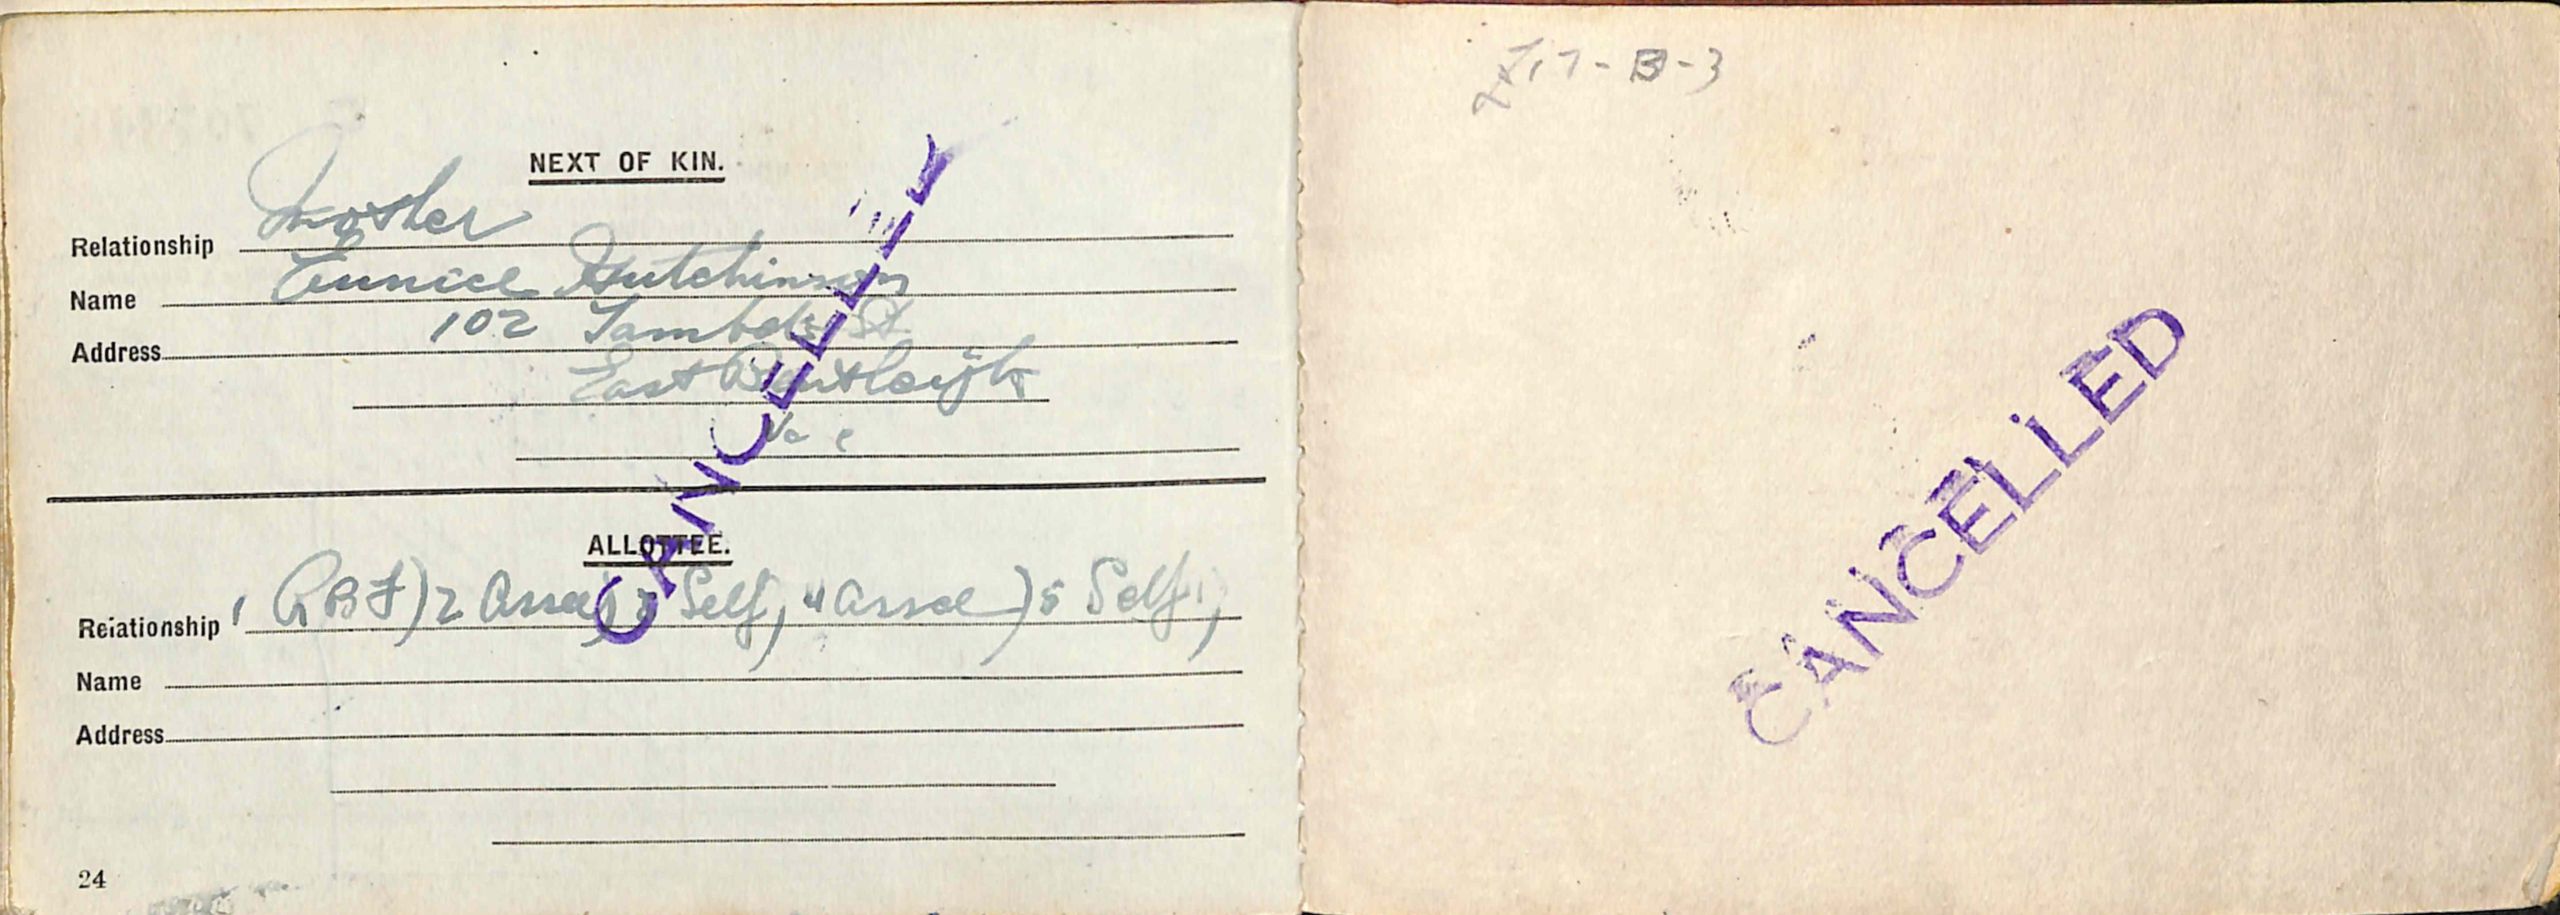 NEXT OF KIN.
Relationship Mother
Name Eunice Hutchinson
Address 102 St
East Bentleigh
Vic
CANCELLED
ALLOTTEE.
Relationship 1 RBF) 2 Assce) 3 Self, 4 Assce) 5 Self,
Name
Address
24
17-B-3
CANCELLED